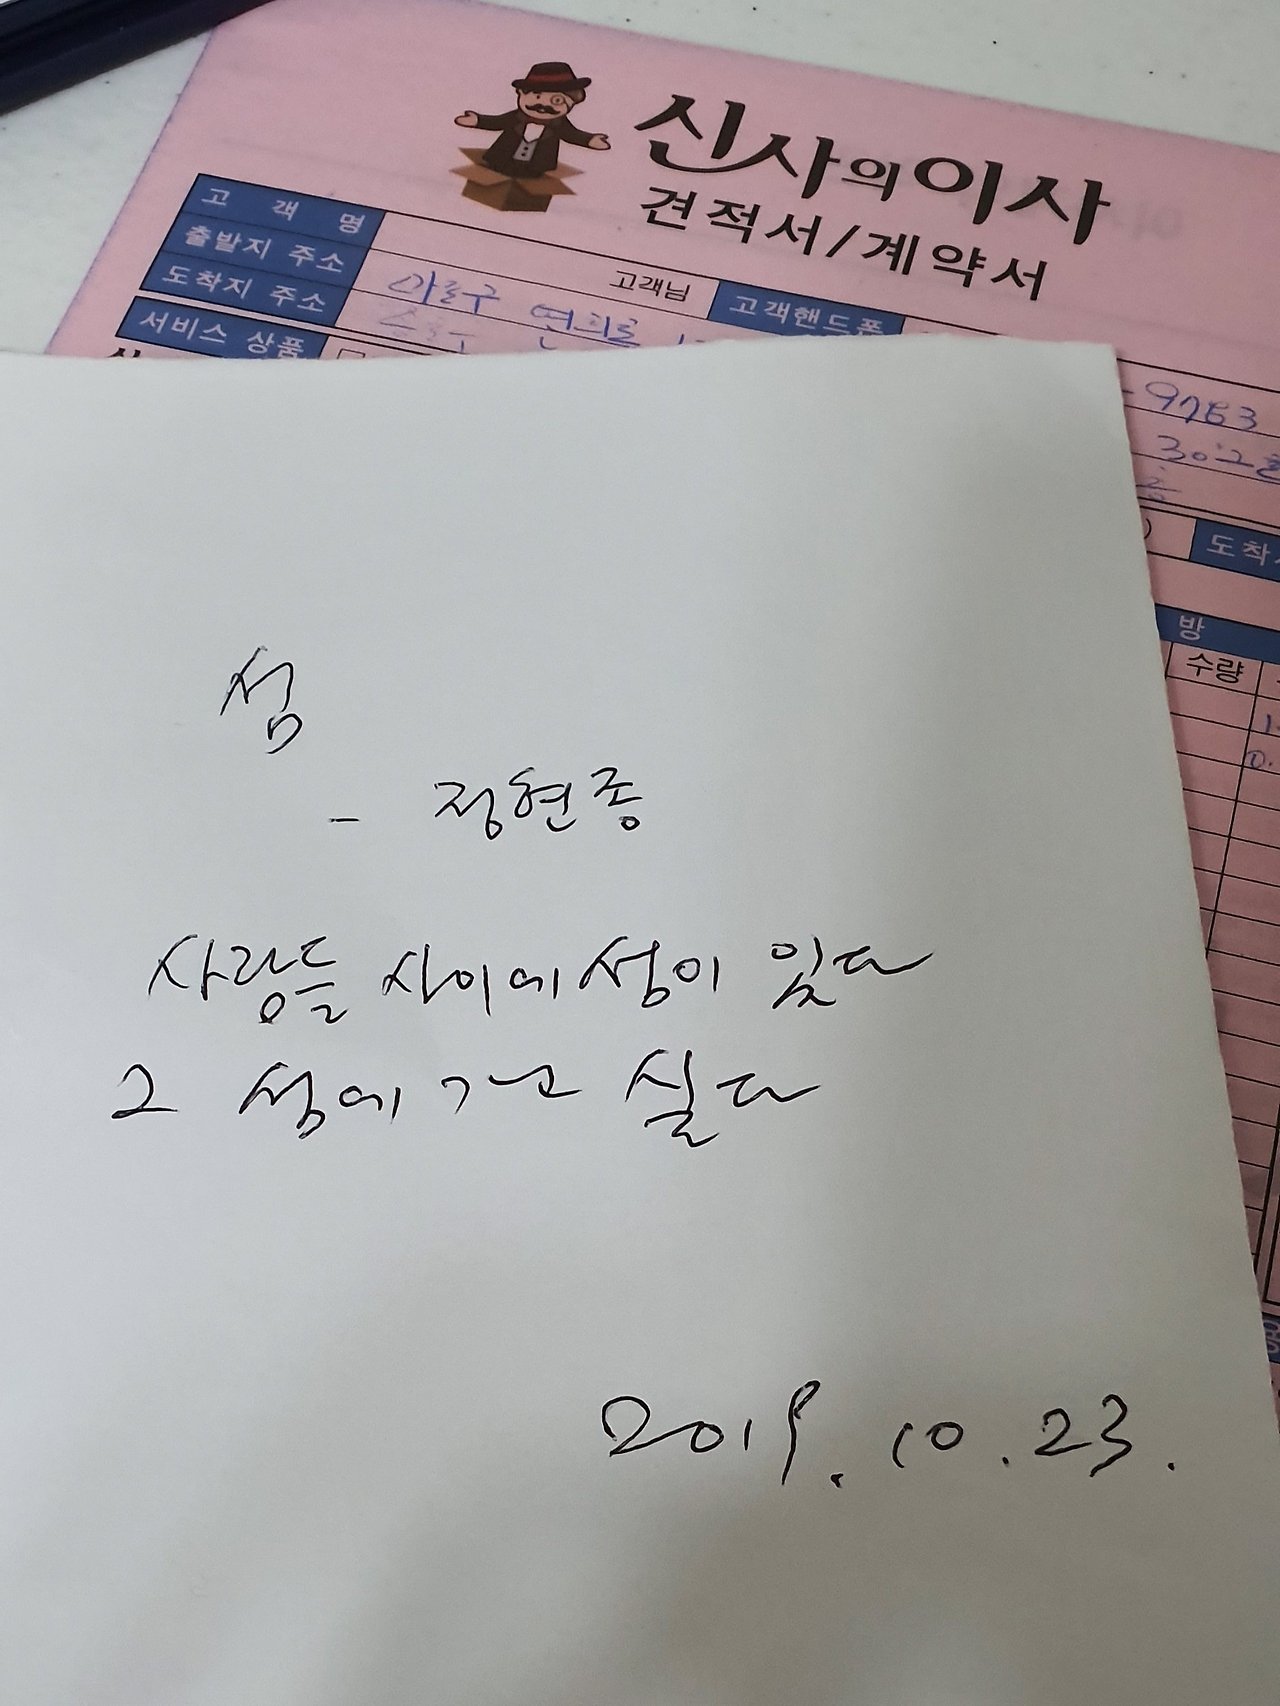 신사의이사
견적서/계약서
고객명
고객님
고객핸드폰
출발지 주소
마포구 연희로
도착지 주소
서비스 상품
-9763
302호
도착
방
수량
섬
- 정현종
사람들 사이에 섬이 있다
그 섬에 가고 싶다
2019. 10. 23.